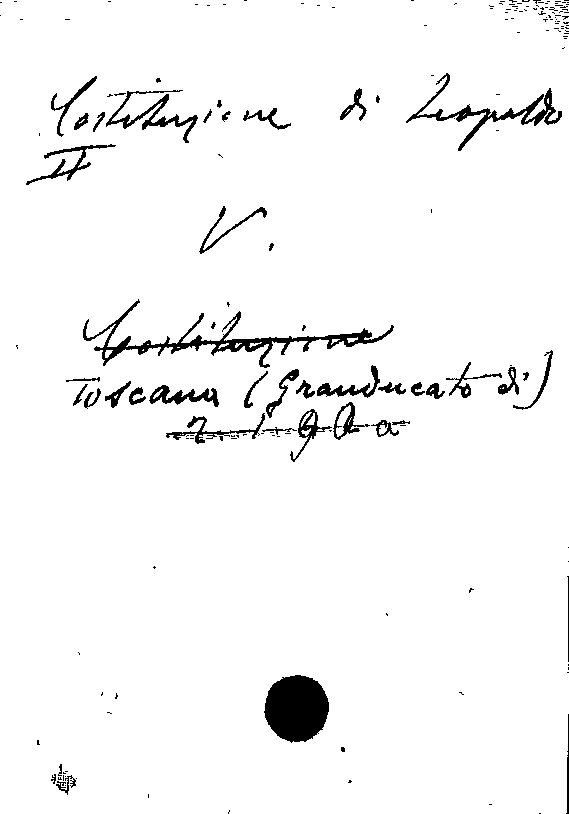 Costituzione di Leopoldo
II
V.
Costituzione
Toscana (Granducato di)